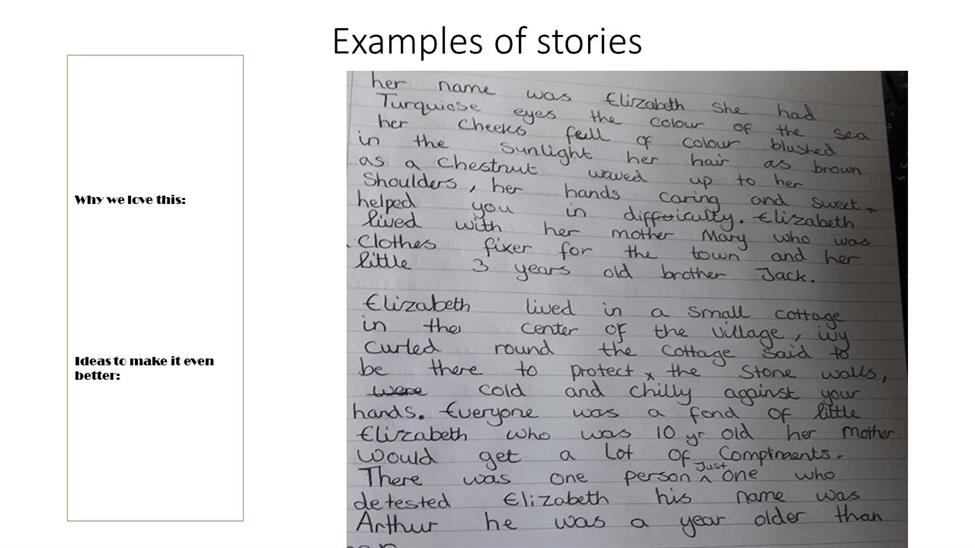 Examples of stories
Why we love this:
Ideas to make it even
better:
her name was Elizabeth she had
Turquiose eyes the colour of the sea
her cheeks full of colour blushed
in the sunlight her hair as brown
as a chestnut waved up to her
Shoulders, her hands caring and sweet
helped you in difficulty. Elizabeth
lived with her mother Mary who was
Clothes fixer for the town and her
little 3 years old brother Jack.
Elizabeth lived in a small cottage
in the center of the village, ivy
curled round the cottage said to
be there to protect x the stone walls,
were cold and chilly against your
hands. Everyone was a fond of little
Elizabeth who was 10 yr old her mother
would get a lot of Compliments.
There was one person just one who
detested Elizabeth his name was
Arthur he was a year older than